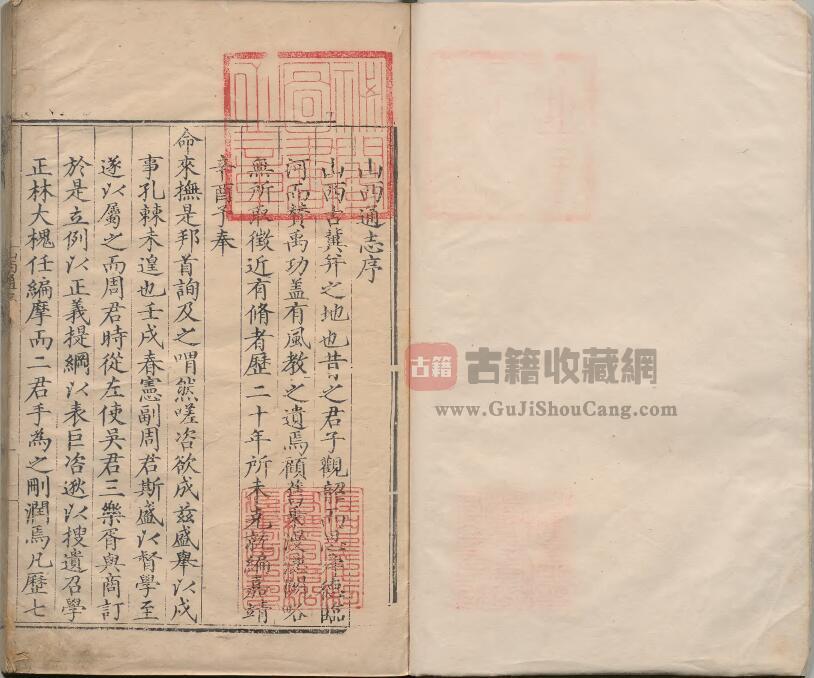 山西通志序
山西古冀并之地也昔之君子觀韶而思舜德臨
河而贊禹功盖有風教之遺焉顧舊乘漫漶闕略
無所取徵近有脩者歷二十年所未克就編嘉靖
辛酉予奉
命來撫是邦首詢及之喟然嗟咨欲成兹盛舉以戍
事孔棘未遑也壬戌春憲副周君斯盛以督學至
遂以屬之而周君時從左使吳君三樂胥與商訂
於是立例以正義提綱以表巨咨逖以搜遺召學
正林大槐任編摩而二君手為之刪潤焉凡歷七
古籍
古籍收藏網
www.GuJiShouCang.com